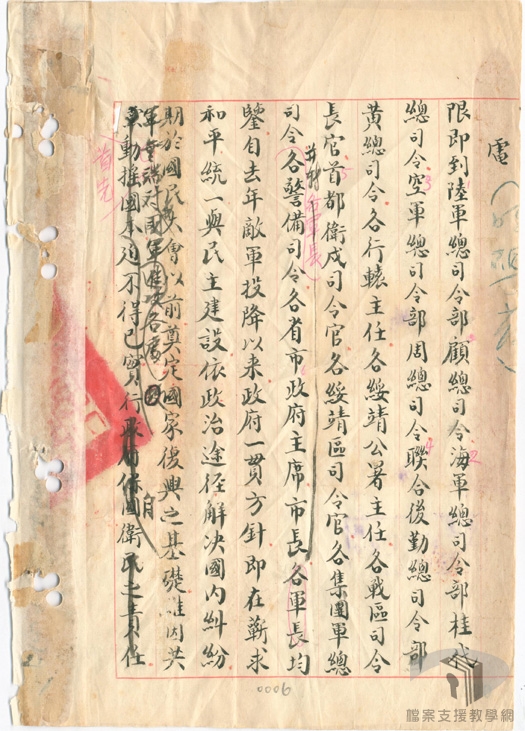 電
限即到陸軍總司令部顧總司令海軍總司令部桂代
總司令空軍總司令部周總司令聯合後勤總司令部
黃總司令各行轅主任各綏靖公署主任各戰區司令
長官首都衛戍司令官各綏靖區司令官各集團軍總
司令各警備司令各省市政府主席市長各軍長均
鑒自去年敵軍投降以來政府一貫方針即在蘄求
和平統一與民主建設依政治途徑解決國內糾紛
期於國民大會以前奠定國家復興之基礎惟因共
動搖國本迫不得已實行 保國衛民之責任
0006
檔案支援教學網